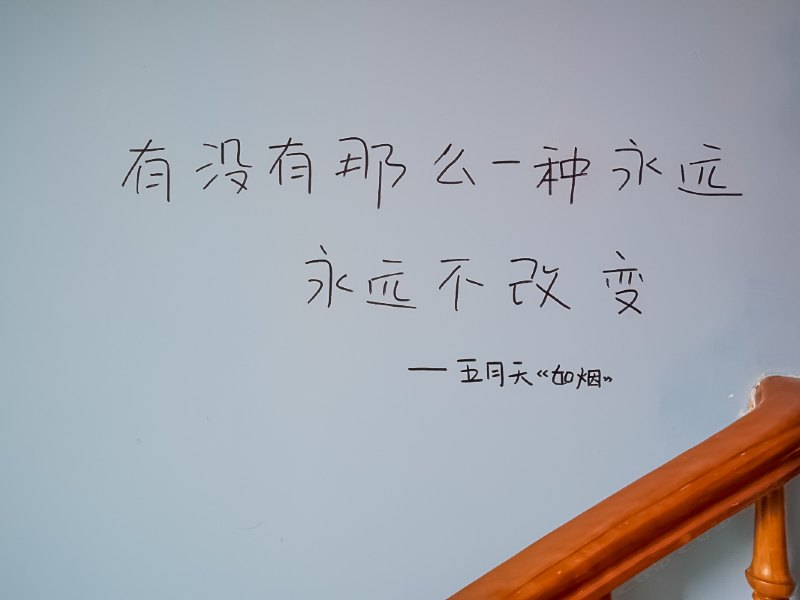 有没有那么一种永远
永远不改变
— 五月天《如烟》